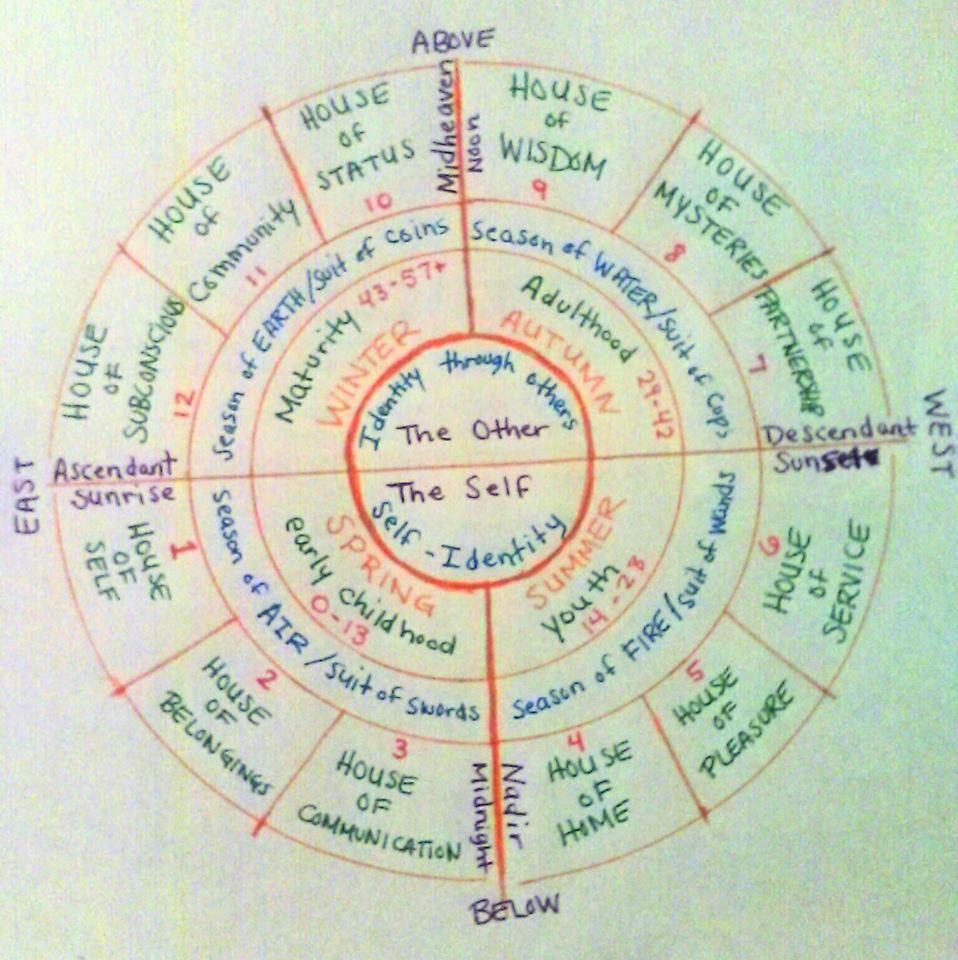 ABOVE
Midheaven
Noon
HOUSE
of
STATUS
10
HOUSE
of
WISDOM
9
HOUSE
of
Community
11
HOUSE
OF
MYSTERIES
8
HOUSE
OF
SUBCONSCIOUS
12
HOUSE
of
PARTNERSHIP
7
Season of EARTH/suit of coins
Season of WATER/suit of cups
Maturity 43-57+
WINTER
Adulthood 29-42
AUTUMN
Identity through others
The Other
EAST
Ascendant
Sunrise
WEST
Descendant
Sunset
The Self
Self-Identity
SPRING
early childhood
0-13
SUMMER
youth
14-28
Season of AIR/suit of swords
Season of FIRE/suit of wands
1
HOUSE
OF
SELF
2
HOUSE
OF
BELONGINGS
3
HOUSE
OF
COMMUNICATION
4
HOUSE
OF
HOME
5
HOUSE
OF
PLEASURE
6
HOUSE
of
SERVICE
Midnight
Nadir
BELOW